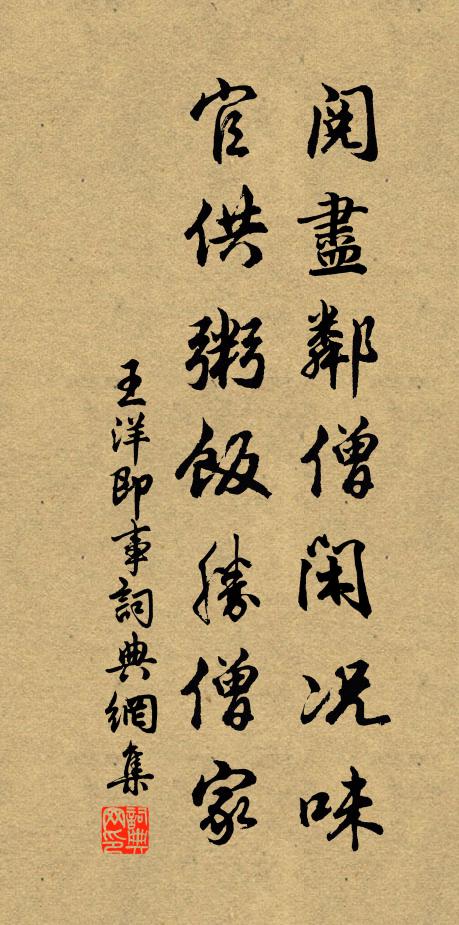 閱盡鄰僧閑況味
官供粥飯勝僧家
王洋即事詞典網集
詞典网印